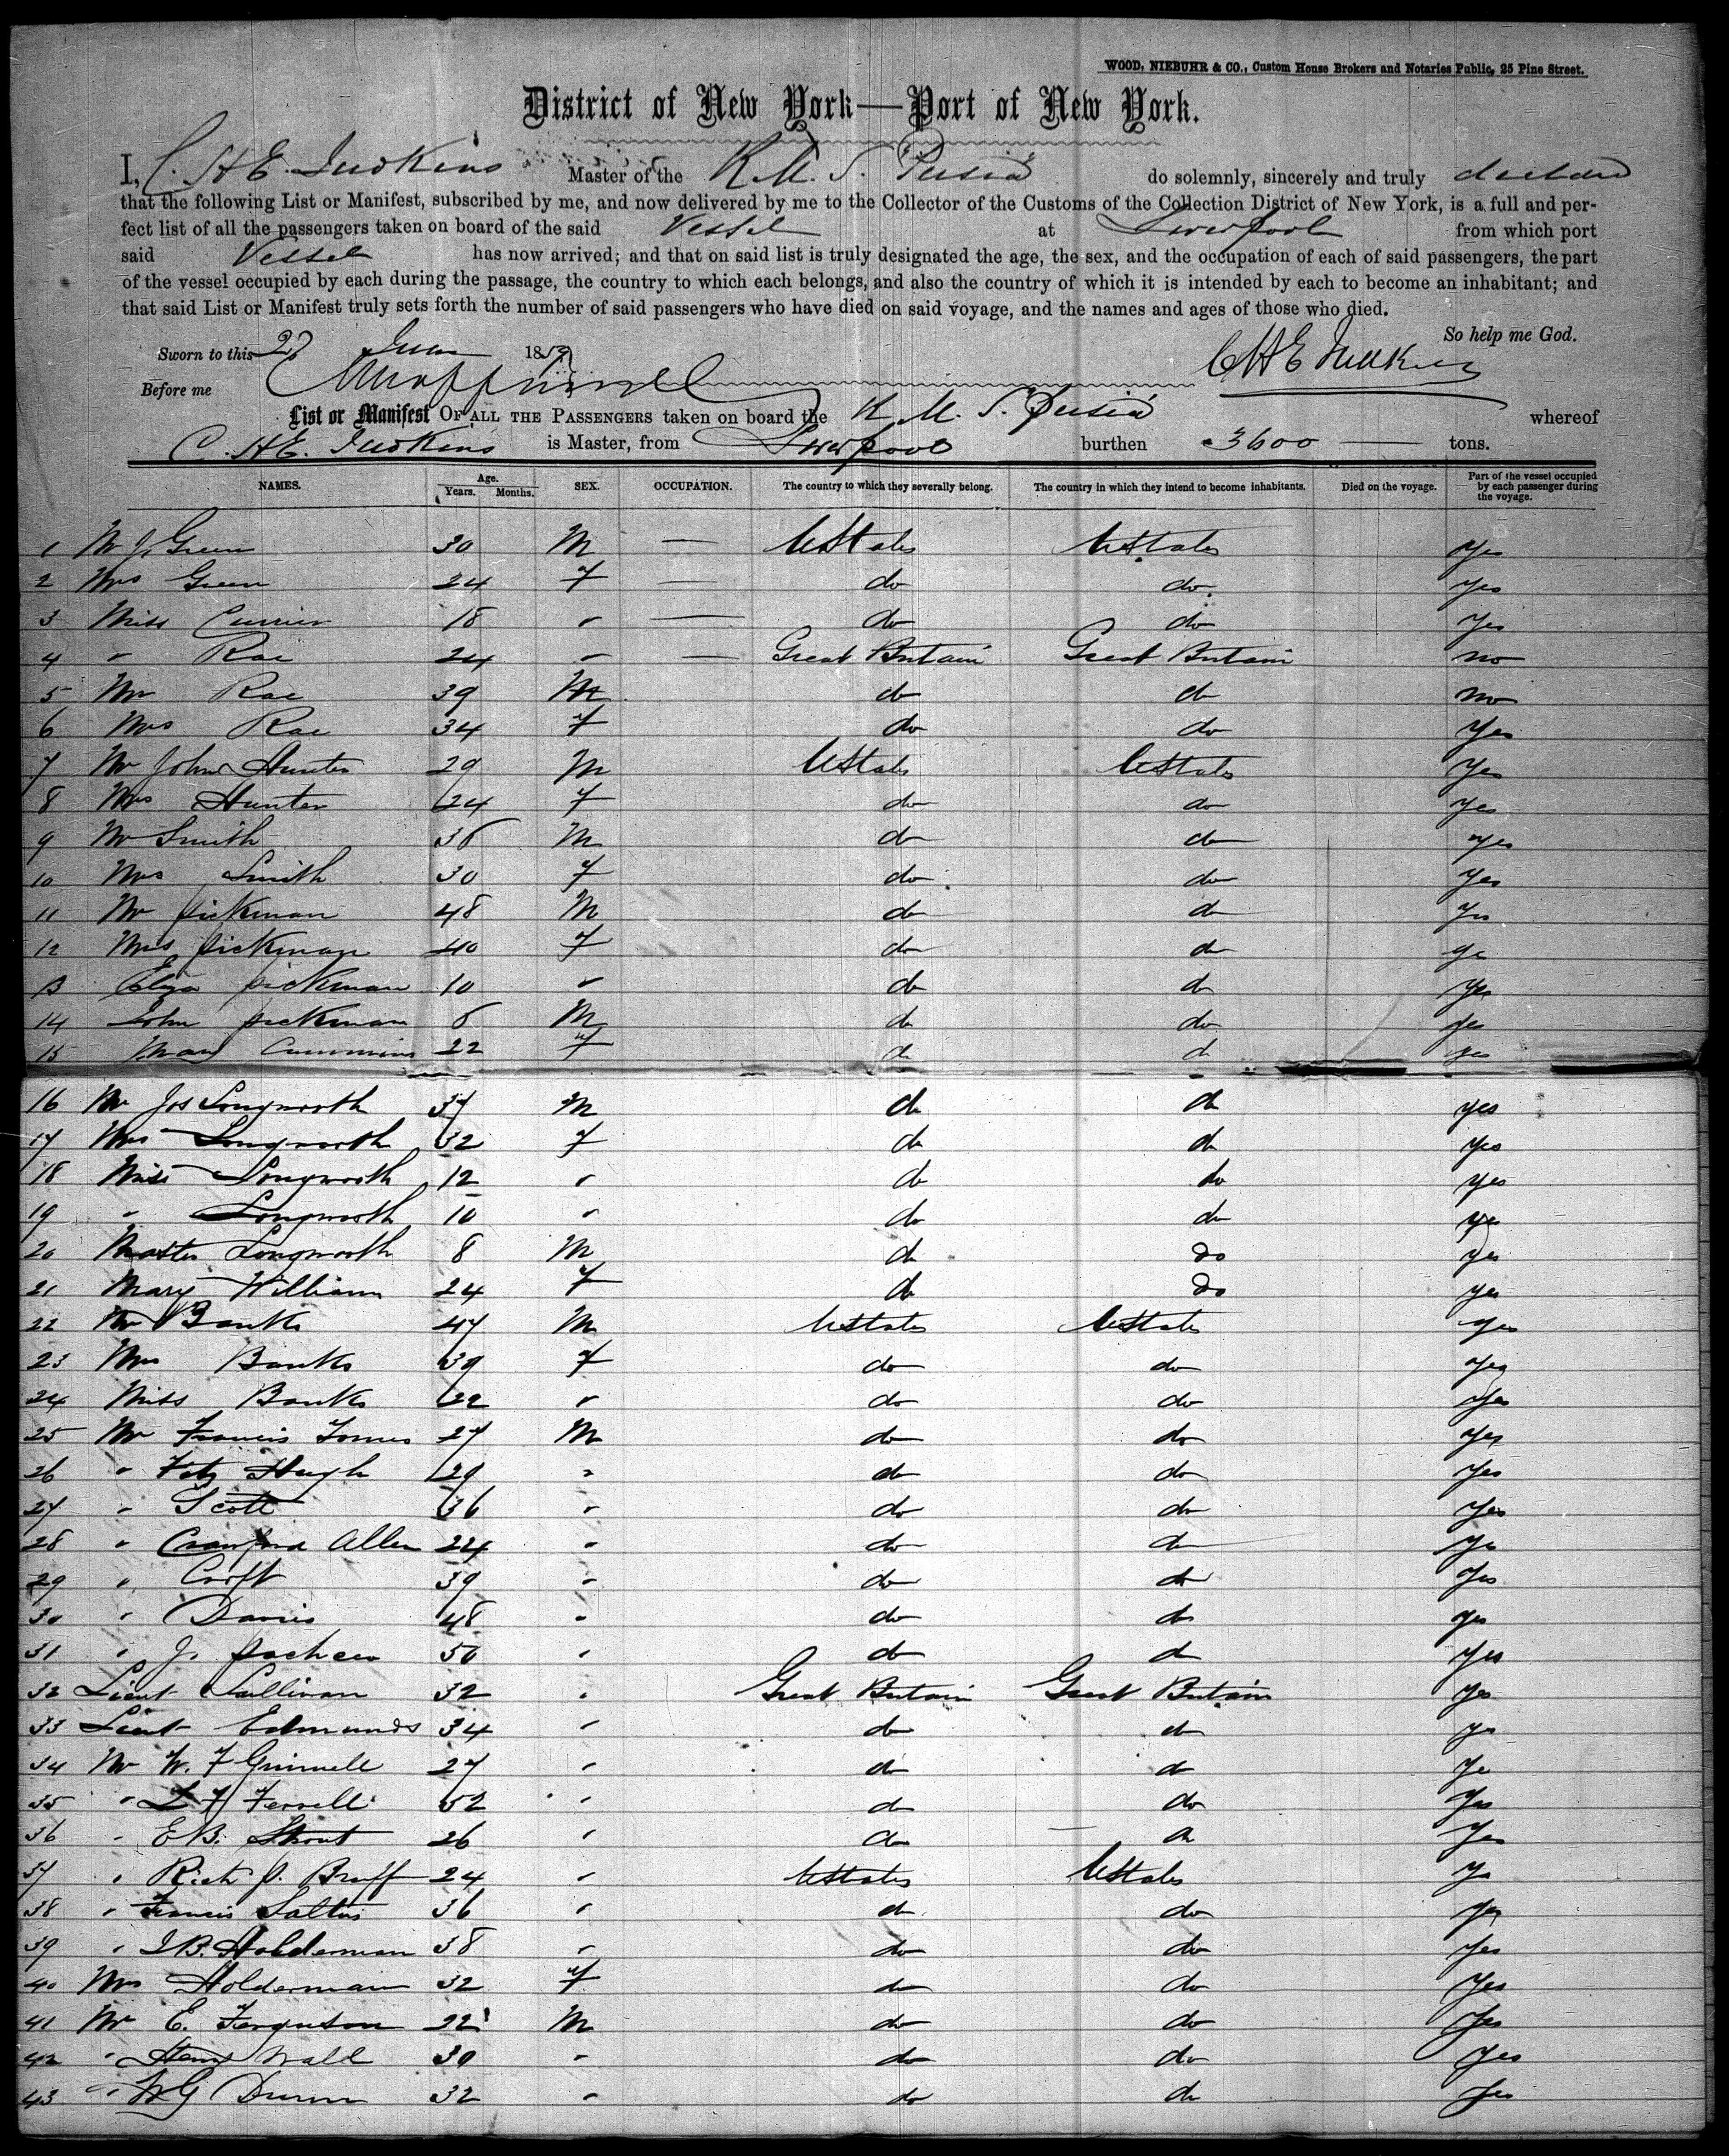 WOOD, NIEBUHR & CO., Custom House Brokers and Notaries Public, 25 Pine Street.
District of New York—Port of New York.
I, C. H E. Judkins Master of the R. M. S. Persia do solemnly, sincerely and truly declare
that the following List or Manifest, subscribed by me, and now delivered by me to the Collector of the Customs of the Collection District of New York, is a full and per-
fect list of all the passengers taken on board of the said Vessel at Liverpool from which port
said Vessel has now arrived; and that on said list is truly designated the age, the sex, and the occupation of each of said passengers, the part
of the vessel occupied by each during the passage, the country to which each belongs, and also the country of which it is intended by each to become an inhabitant; and
that said List or Manifest truly sets forth the number of said passengers who have died on said voyage, and the names and ages of those who died.
So help me God.
Sworn to this 185 CHE Judkins
Before me
List or Manifest OF ALL THE PASSENGERS taken on board the R. M. S. Persia whereof
C. HE. Judkins is Master, from Liverpool burthen 3600 — tons.
NAMES. Age. Years. Months. SEX. OCCUPATION. The country to which they severally belong. The country in which they intend to become inhabitants. Died on the voyage. Part of the vessel occupied by each passenger during the voyage.
1 Mr J. Green 30 M — UStates UStates Yes
2 Mrs Green 24 F — do do Yes
3 Miss Currier 18 " — do do Yes
4 " Rae 24 " — Great Britain Great Britain no
5 Mr Rae 39 M do do no
6 Mrs Rae 34 F do do Yes
7 Mr John Hunter 29 M UStates UStates Yes
8 Mrs Hunter 24 F do do Yes
9 Mr Smith 36 M do do yes
10 Mrs Smith 30 F do do Yes
11 Mr Pickman 48 M do do Yes
12 Mrs Pickman 40 F do do ye
13 Eliza Pickman 10 " do do Yes
14 John Pickman M do do yes
15 Mary Cummins 22 F do do yes
16 Mr Jos Longworth 37 M do do yes
17 Mrs Longworth 32 F do do yes
18 Miss Longworth 12 " do do yes
19 " Longworth 10 " do do yes
20 Master Longworth 8 M do do yes
21 Mary William 24 F do do yes
22 Mr Banks 47 M UStates UStates yes
23 Mrs Banks 39 F do do Yes
24 Miss Banks 22 " do do Yes
25 Mr Francis Tomes 27 M do do Yes
26 " Fitz Hugh 29 " do do Yes
27 " Scott 36 " do do Yes
28 " Crawford Allen 24 " do do Ye
29 " Croft 39 " do do Yes
30 " Davis 48 " do do yes
31 " J. 50 " do do Yes
32 Lieut Sullivan 32 " Great Britain Great Britain Yes
33 Lieut Edmunds 34 " do do ys
34 Mr W. F Grinnell 27 " do do Ye
35 " Ferrelli 52 " do do Yes
36 " E B. Strout 26 " do do Yes
37 " Rich J. Bruff 24 " UStates UStates Ys
38 " Francis Saltus 36 " do do Yes
39 " J B. Holderman 38 " do do Yes
40 Mrs Holderman 32 F do do Yes
41 Mr E. Ferguson 22 M do do Yes
42 " Henry Wall 30 " do do Yes
43 " WG Dunn 32 " do do Yes